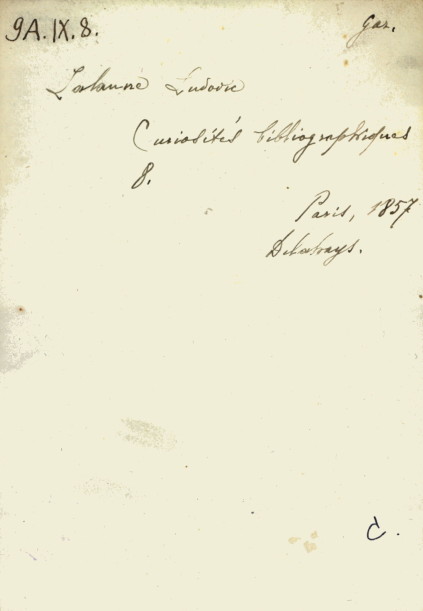 9A.IX.8.
Gar.
Lalanne Ludovic
Curiosités bibliographiques
8.
Paris, 1857
Delahays.
C.